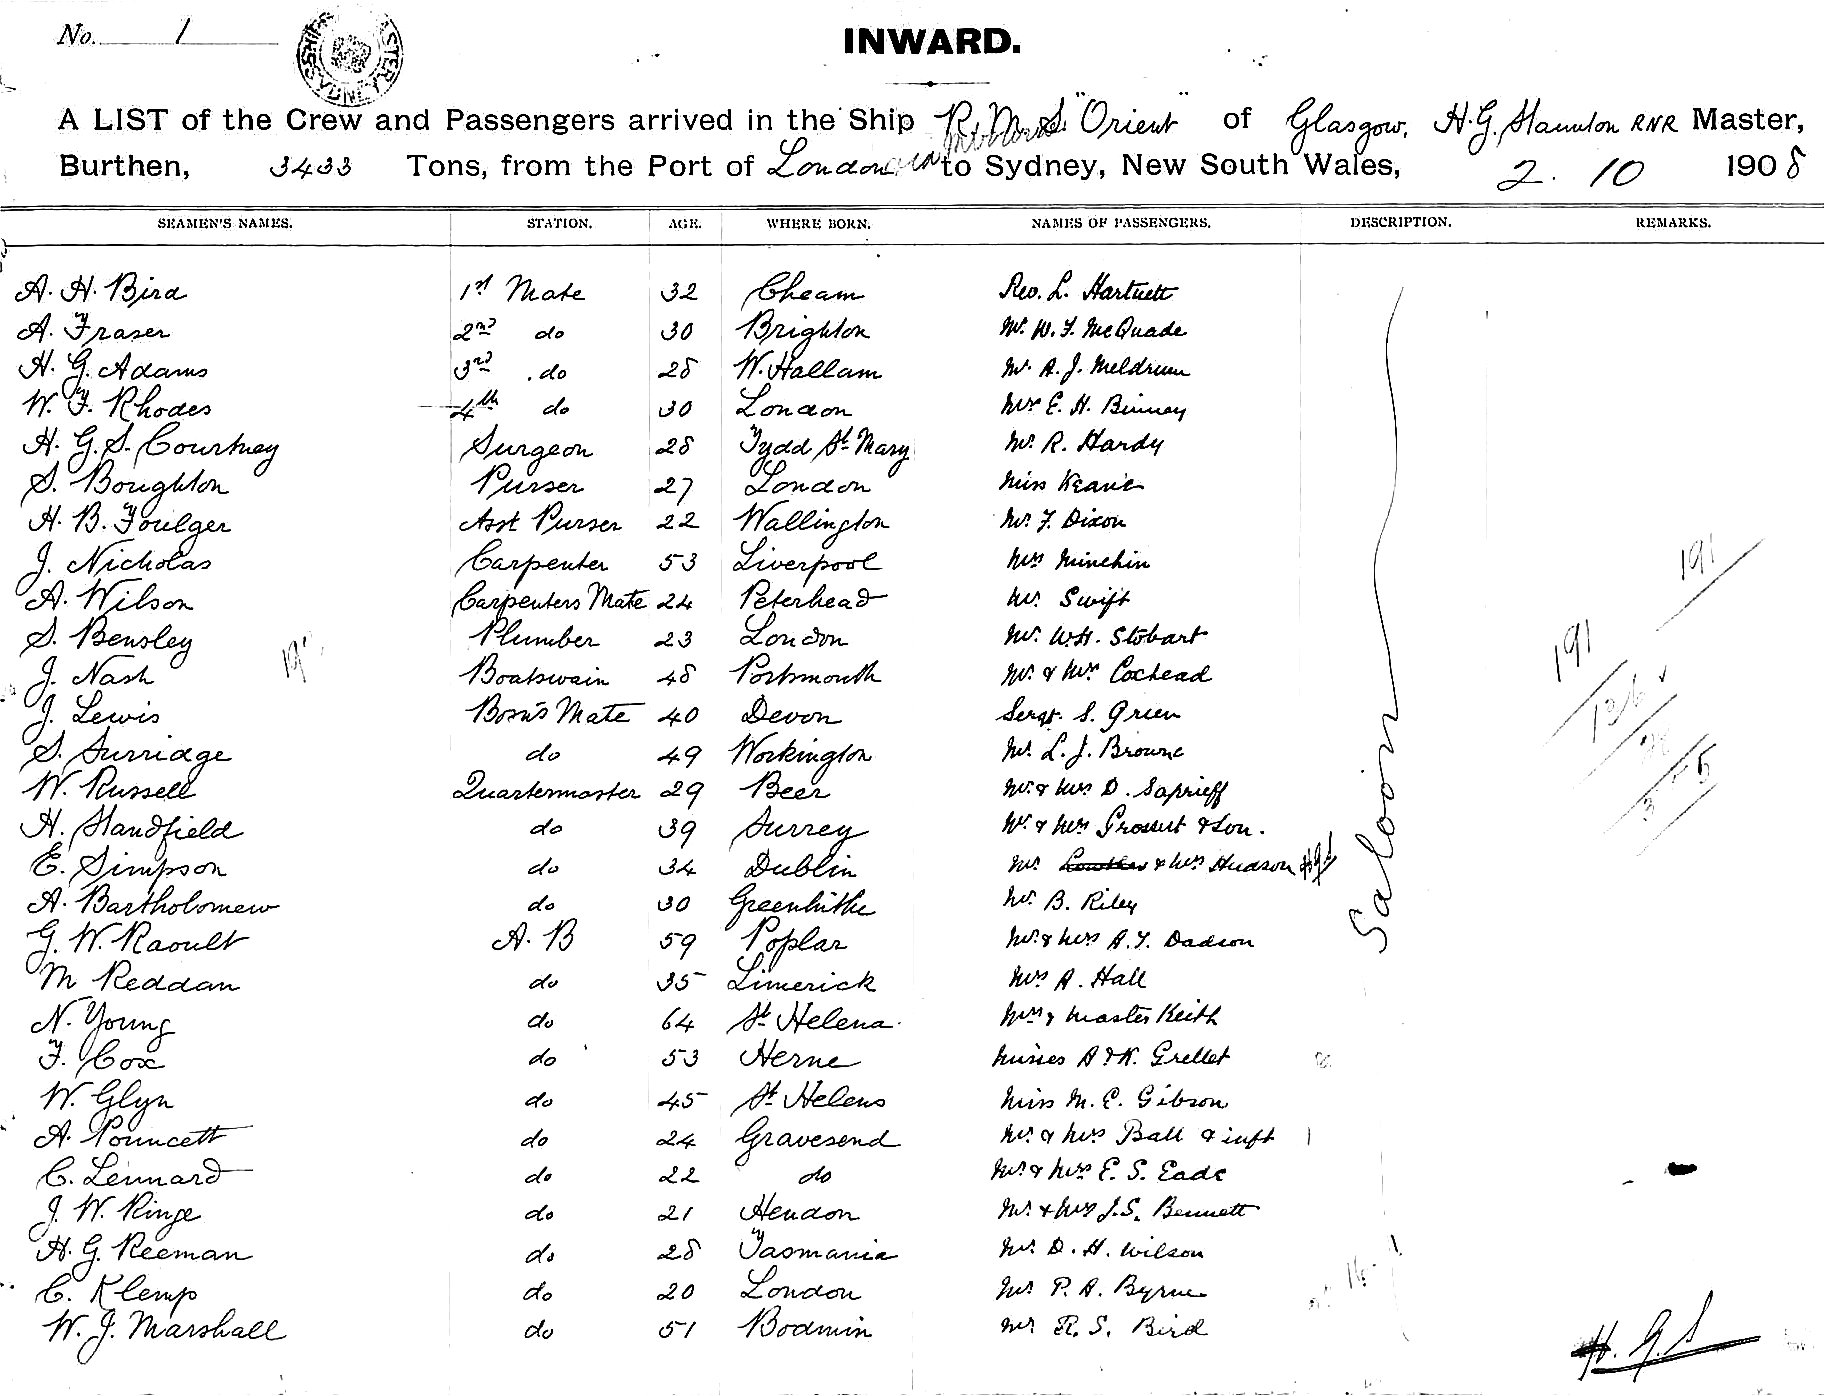 No. 1
INWARD.
A LIST of the Crew and Passengers arrived in the Ship R.M.S. "Orient" of Glasgow, H.G. Staunton RNR Master,
Burthen, 3433 Tons, from the Port of London to Sydney, New South Wales, 2. 10 1908
SEAMEN'S NAMES. STATION. AGE. WHERE BORN. NAMES OF PASSENGERS. DESCRIPTION. REMARKS.
A. H. Bird 1st Mate 32 Cheam Rev. L. Hartnett
A. Fraser 2nd do 30 Brighton Mr. W. F. McQuade
H. G. Adams 3rd do 28 W. Hallam Mr. A. J. Meldrum
W. F. Rhodes 4th do 30 London Mr E. H. Binney
H. G. S. Courtney Surgeon 28 Tydd St. Mary Mr. R. Hardy
S. Boughton Purser 27 London Miss Keane
H. B. Foulger Asst Purser 22 Wallington Mr. F. Dixon
J. Nicholas Carpenter 53 Liverpool Mrs Minchin
A. Wilson Carpenters Mate 24 Peterhead Mr. Swift
S. Bensley Plumber 23 London Mr. W.H. Stobart
J. Nash Boatswain 48 Portsmouth Mr. & Mrs. Cochead
J. Lewis Bosn's Mate 40 Devon Sergt. S. Green
S. Surridge do 49 Workington Mr. L. J. Browne
W. Russell Quartermaster 29 Beer Mr. & Mrs D. Saprieff
H. Standfield do 39 Surrey Mr. & Mrs Grossert & Son.
E. Simpson do 34 Dublin Mr. & Mrs Hudson
A. Bartholomew do 30 Greenhithe Mr. B. Riley
G. W. Raoult A. B 59 Poplar Mr. & Mrs A. F. Dadson
M Reddan do 35 Limerick Mrs A. Hall
N. Young do 64 St Helena. Mrs & Master Keith
F. Cox do 53 Herne Misses A & K. Grellet
W. Glyn do 45 St Helens Miss M. E. Gibson
A. Pouncett do 24 Gravesend Mr. & Mrs Ball & inft
C. Lennard do 22 do Mr. & Mrs E. S. Eade
J. W. Ringe do 21 Hendon Mr. & Mrs J. S. Bennett
H. G. Reeman do 28 Tasmania Mr. D. H. Wilson
C. Klemp do 20 London Mr P. A. Byrne
W. J. Marshall do 51 Bodmin Mr R. S. Bird
Saloon
191
191
136
H. G. S